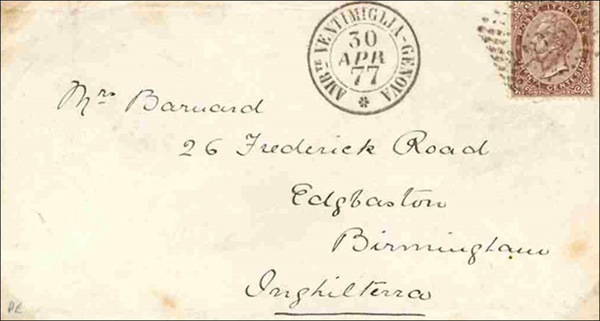 AMB.TE VENTIMIGLIA-GENOVA
30
APR
77
POSTE ITALIANE
Mrs Barnard
26 Frederick Road
Edgbaston
Birmingham
Inghilterra